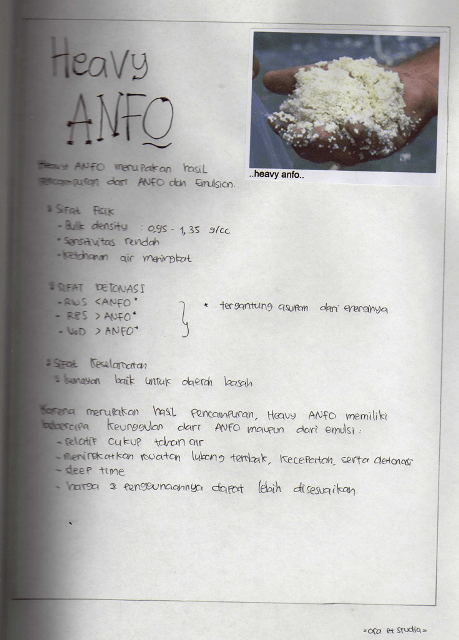 Heavy
ANFO
..heavy anfo..
Heavy ANFO merupakan hasil
pencampuran dari ANFO dan Emulsion.
Sifat Fisik
- Bulk density : 0,95 - 1,35 g/cc
- Sensitivitas rendah
- Ketahanan air meningkat
SIFAT DETONASI
- RWS < ANFO*
- RBS > ANFO*
- VoD > ANFO*
* tergantung asupan dari energinya
Sifat Keselamatan
baik untuk daerah basah
Karena merupakan hasil pencampuran, Heavy ANFO memiliki
beberapa keunggulan dari ANFO maupun dari emulsi :
- relatif cukup tahan air
- meningkatkan muatan lubang tembak, kecepatan, serta detonasi
- deep time
- harga & penggunaannya dapat lebih disesuaikan
=ora et studia=